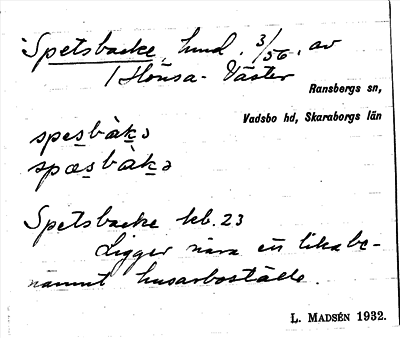 Spetsbacke, hmd. 3/56. av
/ Hönsa-Väster
Ransbergs sn,
Vadsbo hd, Skaraborgs län
spesbàkə
spæsbàkə
Spetsbacke kb. 23
Ligger nära en lika be-
nämnt husarboställe.
L. MADSÉN 1932.